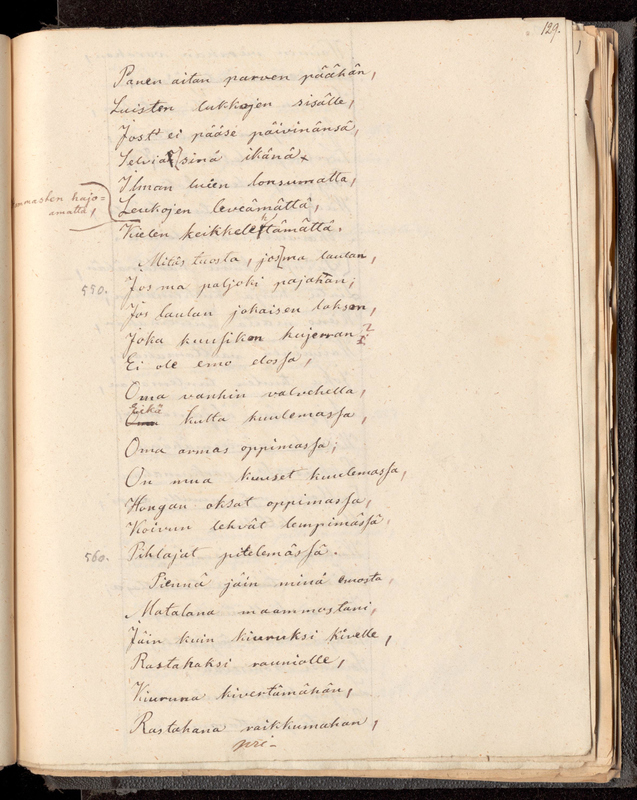 129.
Panen aitan parven päähän,
Luisten lukkojen sisälle,
Jost' ei pääse päivinänsä,
Selviä sinä ikänä
Ilman luien lonsumatta,
hajo=
amatta,
Leukojen leveämättä,
Kielen keikkelehtämättä.
Mitäs tuosta, jos ma laulan,
550.
Jos ma paljoki pajahan;
Jos laulan jokaisen lakson,
Joka kuusikon kujerran
Ei ole emo elossa,
Oma vanhin valvehella,
Eikä kulta kuulemassa,
Oma armas oppimassa;
On mua kuuset kuulemassa,
Hongan oksat oppimassa,
Koivun lehvät lempimässä,
560.
Pihlajat pitelemässä.
Piennä jäin minä emosta,
Matalana maammostani,
Jäin kuin kiuruksi kivelle,
Rastahaksi rauniolle,
Kiuruna kivertämähän,
Rastahana raikkumahan,